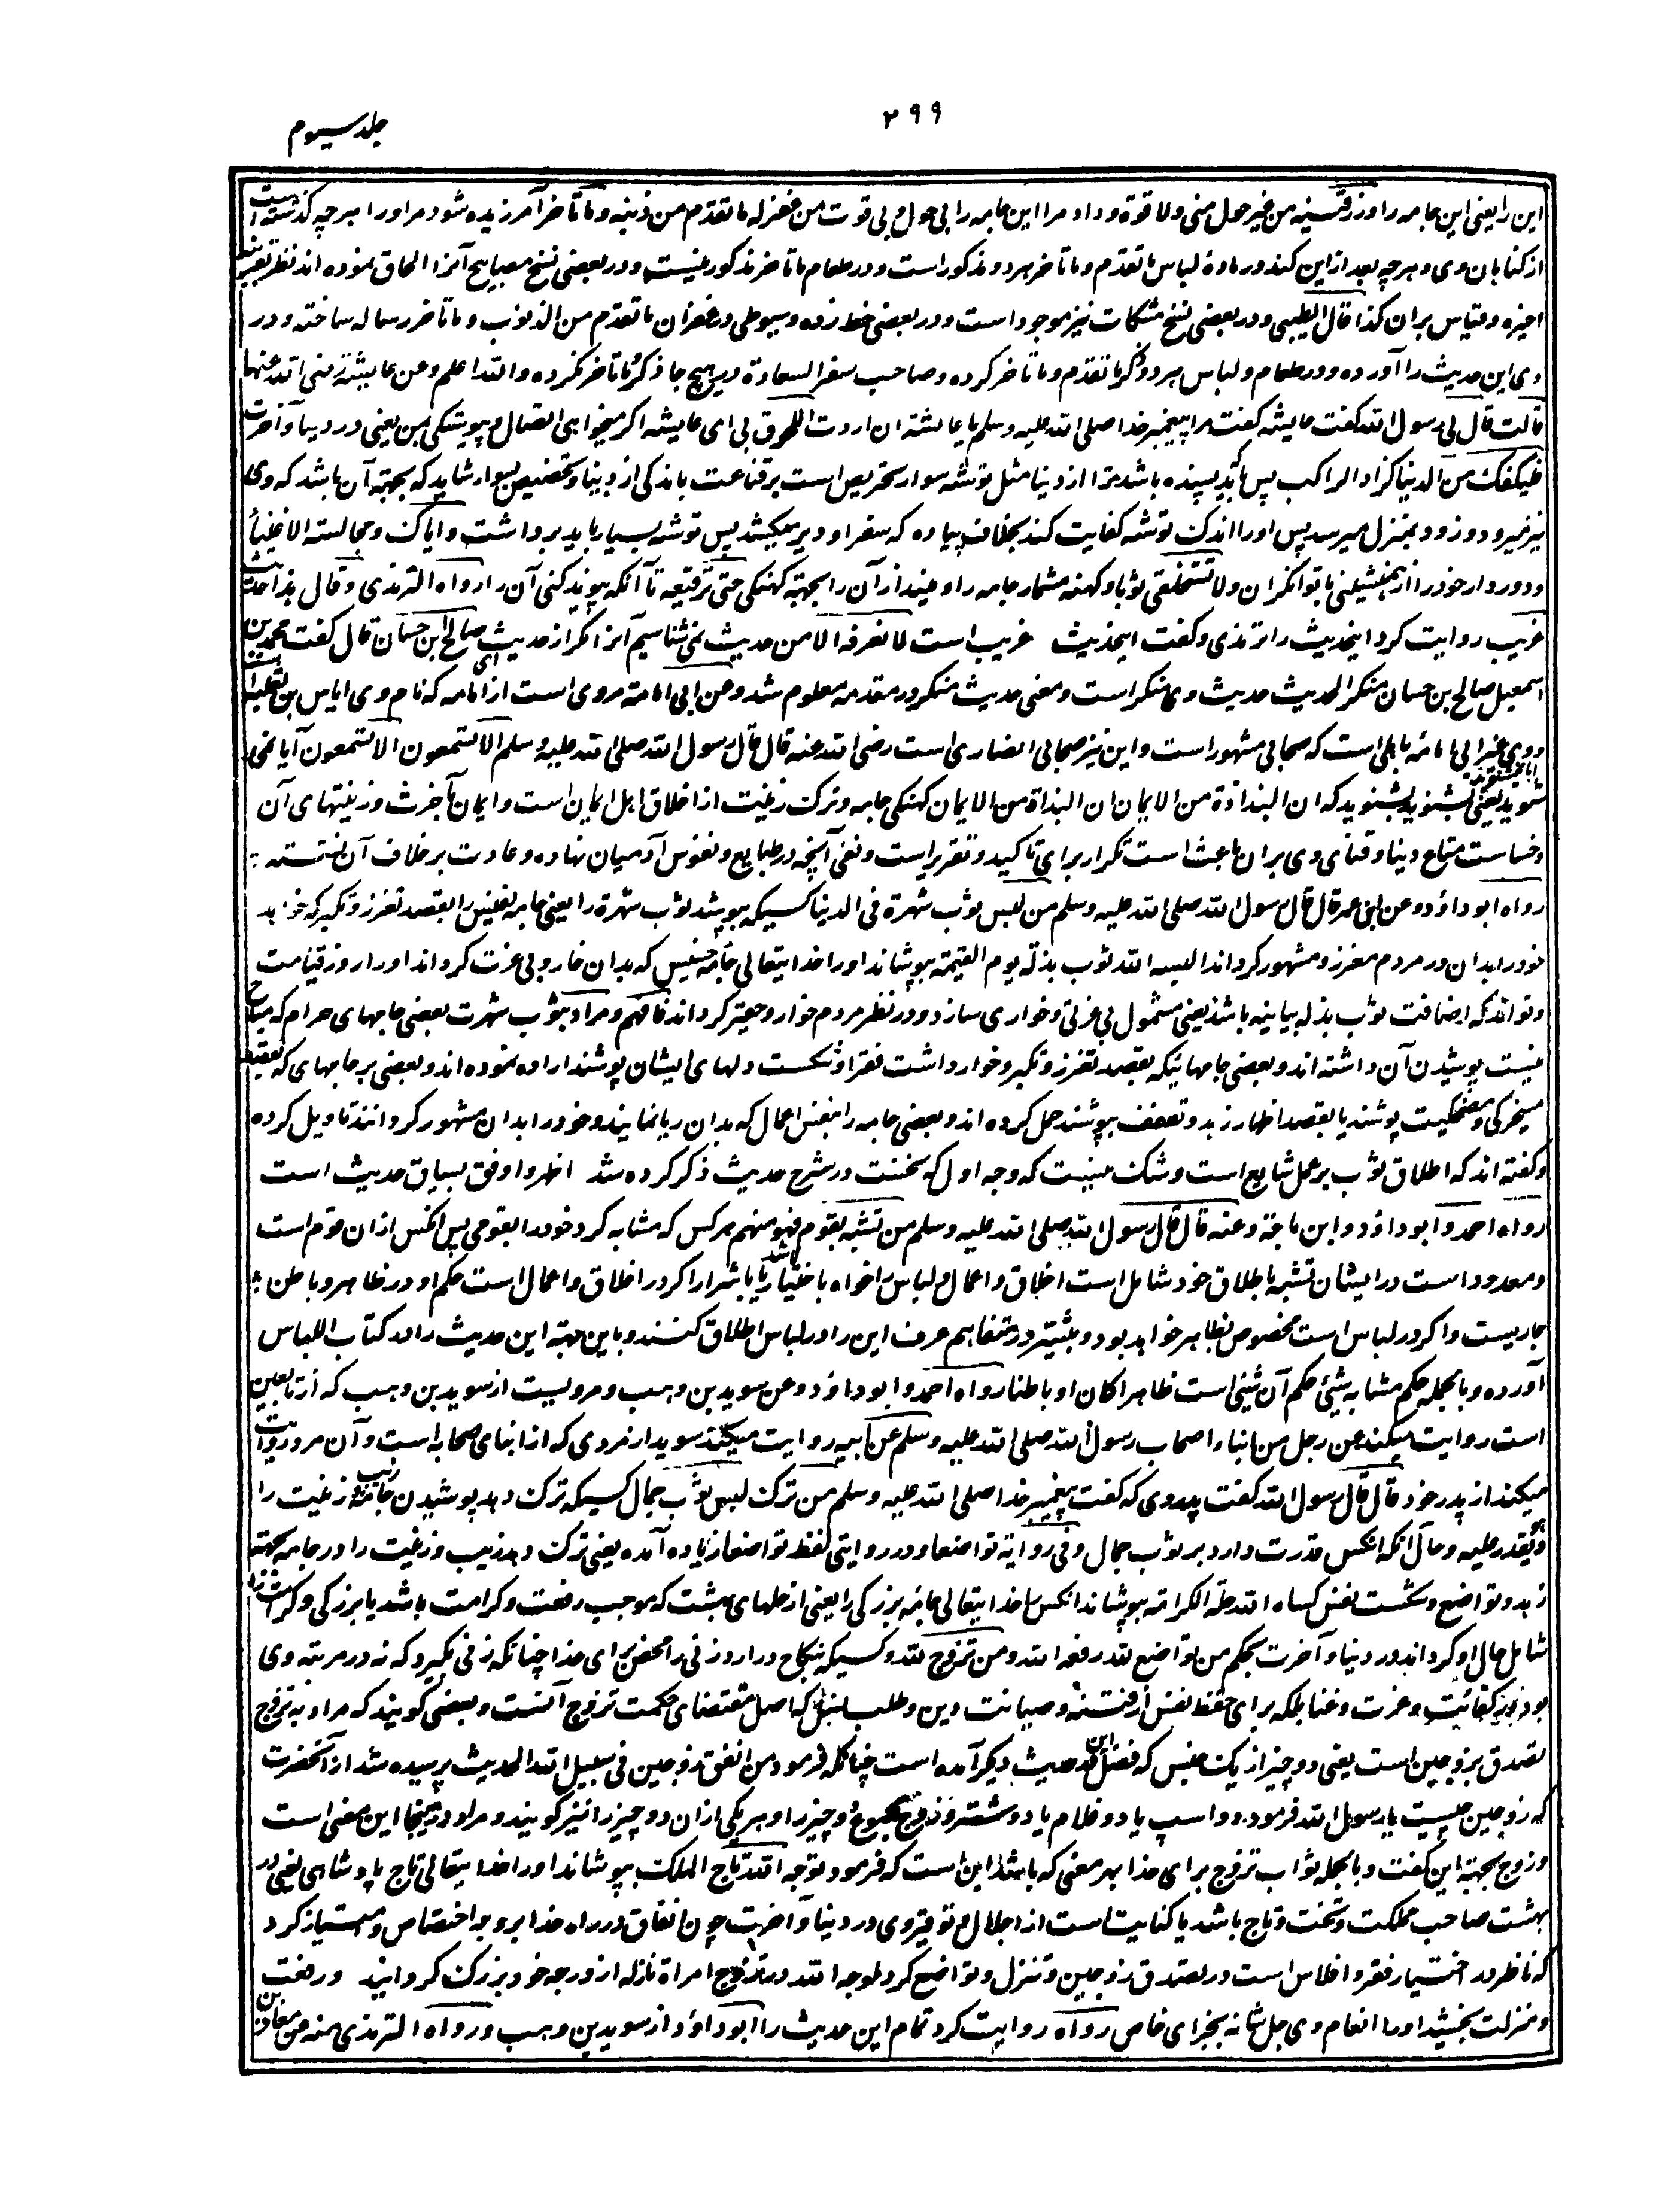 ۲۹۹
جلد سیوم
این را یعنی این جامه را و رزقنیه من غیر حول منی ولا قوة و داد مرا این جامه را بی حول و بی قوت من غفر له ما تقدم من ذنبه و ما تاخر آمرزیده شود مر او را هر چه گذشته است
از گناهان وی و هر چه بعد ازین کند و در مادهٔ لباس ما تقدم و ما تاخر هر دو مذکور است و در طعام ما تاخر مذکور نیست و در بعضی نسخ مصابیح آنرا الحاق نموده اند نظر بقرینه
اخیره و قیاس بران کذا قال الطیبی و در بعضی نسخ مشکات نیز موجود است و در بعضی خط زده و سیوطی در غفران ما تقدم من الذنوب و ما تاخر رساله ساخته و در
وی این حدیث را آورده و در طعام و لباس هر دو ذکر ما تقدم و ما تاخر کرده و صاحب سفر السعادة در هیچ جا ذکر ما تاخر نکرده والله اعلم وعن عایشة رضی الله عنها
قالت قال لی رسول الله گفت عایشه گفت مرا پیغمبر خدا صلی الله علیه وسلم یا عائشة ان اردت اللحوق بی ای عایشه اگر میخواهی اتصال و پیوستگی بمن یعنی در دنیا و آخرت
فلیکفک من الدنیا کزاد الراکب پس باید که بسنده باشد ترا از دنیا مثل توشه سوار تحریص است بر قناعت باندکی از دنیا و تخصیص بسوار شاید که بجهته آن باشد که وی
تیز میرود و زود بمنزل میرسد پس او را اندک توشه کفایت کند بخلاف پیاده که سفر او دیر میکشد پس توشه بسیار باید برداشت وایاک ومجالسة الاغنیاء
و دور دار خود را از همنشینی با توانگران ولا تستخلقی ثوبا و کهنه مشمار جامه را و مینداز آن را بجهته کهنگی حتی ترقعیه تا آنکه پیوند کنی آن را رواه الترمذی وقال هذا حدیث
غریب روایت کرد اینحدیث را ترمذی و گفت اینحدیث غریب است لا نعرفه الا من حدیث نمی شناسیم آنرا مگر از حدیث صالح ابن حسان قال گفت محمد بن
اسمعیل صالح بن حسان منکر الحدیث حدیث وی منکر است و معنی حدیث منکر در مقدمه معلوم شد وعن ابی امامة مروی است از ابی امامه که نام وی ایاس بن ثعلبه است
و وی غیر ابی امامه باهلی است که صحابی مشهور است و این نیز صحابی انصاری است رضی الله عنه قال قال رسول الله صلی الله علیه وسلم الا تسمعون الا تسمعون آیا نمی
شنوید آیا نمیشنوید یعنی بشنوید بشنوید که ان البذاذة من الایمان ان البذاذة من الایمان کهنگی جامه و ترک زینت از اخلاق اهل ایمان است و ایمان بآخرت و زینتهای آن
و خساست متاع دنیا و فنای وی بران باعث است تکرار برای تاکید و تقریر است و نفی آنچه در طبایع و نفوس آدمیان نهاده و عادت بر خلاف آن نشسته
رواه ابو داؤد وعن ابن عمر قال قال رسول الله صلی الله علیه وسلم من لبس ثوب شهرة فی الدنیا کسیکه بپوشد ثوب شهرة را یعنی جامه نفیس را بقصد تعزز و تکبر که خواهد
خود را بدان در مردم معزز و مشهور گرداند البسه الله ثوب بذلة یوم القیمة بپوشاند او را خدایتعالی جامه خسیس که بدان خوار و بی عزت گرداند او را روز قیامت
و تواند که اضافت ثوب بذله بیانیه باشد یعنی مشمول بی عزتی و خواری سازد و در نظر مردم خوار و حقیر گرداند فافهم و مراد بثوب شهرت بعضی جامهای حرام که مباح
نیست پوشیدن آن داشته اند و بعضی جامهائیکه بقصد تعزز و تکبر و خوار داشت فقرا و شکست دلهای ایشان پوشند اراده نموده اند و بعضی بر جامهای که بقصد
مسخرگی و مضحکیت پوشند یا بقصد اظهار زهد و تعفف بپوشند حمل کرده اند و بعضی جامه را بنفس اعمال که بدان ریا نمایند و خود را بدان مشهور گردانند تاویل کرده
و گفته اند که اطلاق ثوب بر عمل شایع است و شک نیست که وجه اول که نخست در شرح حدیث ذکر کرده شد اظهر و اوفق بسیاق حدیث است
رواه احمد و ابو داؤد وابن ماجة وعنه قال قال رسول الله صلی الله علیه وسلم من تشبه بقوم فهو منهم هر کس که مشابه کرد خود را بقومی پس آنکس ازان قوم است
و معدود است در ایشان تشبه باطلاق خود شامل است اخلاق و اعمال و لباس را خواه باخیار باشد یا باشرار اگر در اخلاق و اعمال است حکم او در ظاهر و باطن
جاریست و اگر در لباس است مخصوص بظاهر خواهد بود و بیشتر در متفاهم عرف این را در لباس اطلاق کنند و باین جهته این حدیث را در کتاب اللباس
آورده و بالجمله حکم مشابه شیئ حکم آن شیئ است ظاهرا کان او باطنا رواه احمد وابو داؤد وعن سوید بن وهب و مرویست از سوید بن وهب که از تابعین
است روایت میکند عن رجل من ابناء اصحاب رسول الله صلی الله علیه وسلم عن ابیه روایت میکند سوید از مردی که از ابنای صحابه است و آن مرد روایت
میکند از پدر خود قال قال رسول الله گفت پدر وی که گفت پیغمبر خدا صلی الله علیه وسلم من ترک لبس ثوب جمال کسیکه ترک دهد پوشیدن جامه زیب و زینت را
وهو یقدر علیه و حال آنکه آنکس قدرت دارد بر ثوب جمال وفی روایة تواضعا و در روایتی لفظ تواضعا زیاده آمده یعنی ترک دهد زیب و زینت را در جامه بجهته
زهد و تواضع و شکست نفس کساه الله حلة الکرامة بپوشاند آنکس را خدایتعالی جامه بزرگی را یعنی از حلهای بهشت که موجب رفعت و کرامت باشد یا بزرگی و کرامت را
شامل حال او گرداند در دنیا و آخرت بحکم من تواضع لله رفعه الله ومن تزوج لله و کسیکه نکاح در آرد زنی را محض برای خدا چنانکه زنی بگیرد که نه در مرتبه وی
بود در کفائت و عزت و غنا بلکه برای حفظ نفس از فتنه و صیانت دین و طلب نسل که اصل مقتضای حکمت تزوج آنست و بعضی گویند که مراد به تزوج
تصدق بزوجین است یعنی دو چیز از یک جنس که فضل این در حدیث دیگر آمده است چنانکه فرمود من انفق زوجین فی سبیل الله الحدیث پرسیده شد از آنحضرت
که زوجین چیست یا رسول الله فرمود دو اسپ یا دو غلام یا دو شتر و زوج مجموع دو چیز را و هر یکی ازان دو چیز را نیز گویند و مراد در اینجا این معنی است
و زوج بجهته این گفت و بالجمله ثواب تزوج برای خدا بهر معنی که باشد این است که فرمود توجه الله تاج الملک بپوشاند او را خدایتعالی تاج پادشاهی یعنی در
بهشت صاحب مملکت و تخت و تاج باشد یا کنایت است از اجلال و توقیر وی در دنیا و آخرت چون انفاق در راه خدا بر وجه اختصاص و امتیاز کرد
که ناظر در اختیار فقر و افلاس است در تصدق بزوجین و تنزل و تواضع کرد لوجه الله در تزوج امراة نازله از درجه خود بزرگ گردانید و رفعت
و منزلت بخشید او را انعام وی جل شانه بجزای خاص رواه روایت کرد تمام این حدیث را ابو داؤد از سوید بن وهب و رواه الترمذی منه عن معاذ بن